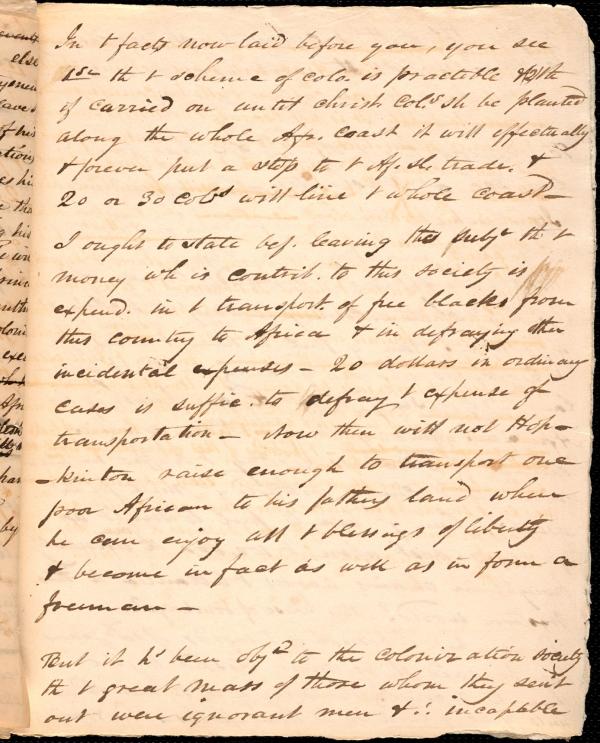 else
In t facts now laid before you, you see
1st th t scheme of colo. is practible & 2d th
if carried on until christn Colos sh be planted
along the whole Afr. coast it will effectually
& forever put a stop to t Af. sl. trade. &
20 or 30 colos will line t whole coast—
I ought to state bef. leaving this subjt th t
money wh is contrib. to this society is
expend. in t transport. of free blacks from
this country to Africa & in defraying other
incidental expenses — 20 dollars in ordinary
cases is suffic. to defray t expense of
transportation — Now then will not Hop–
–kinton raise enough to transport one
poor African to his fathers land where
he can enjoy all t blessings of liberty
& become in fact as well as in form a
freeman —
But it hs been objd to the colonization society
th t great mass of those whom they sent
out were ignorant men & incapable
by